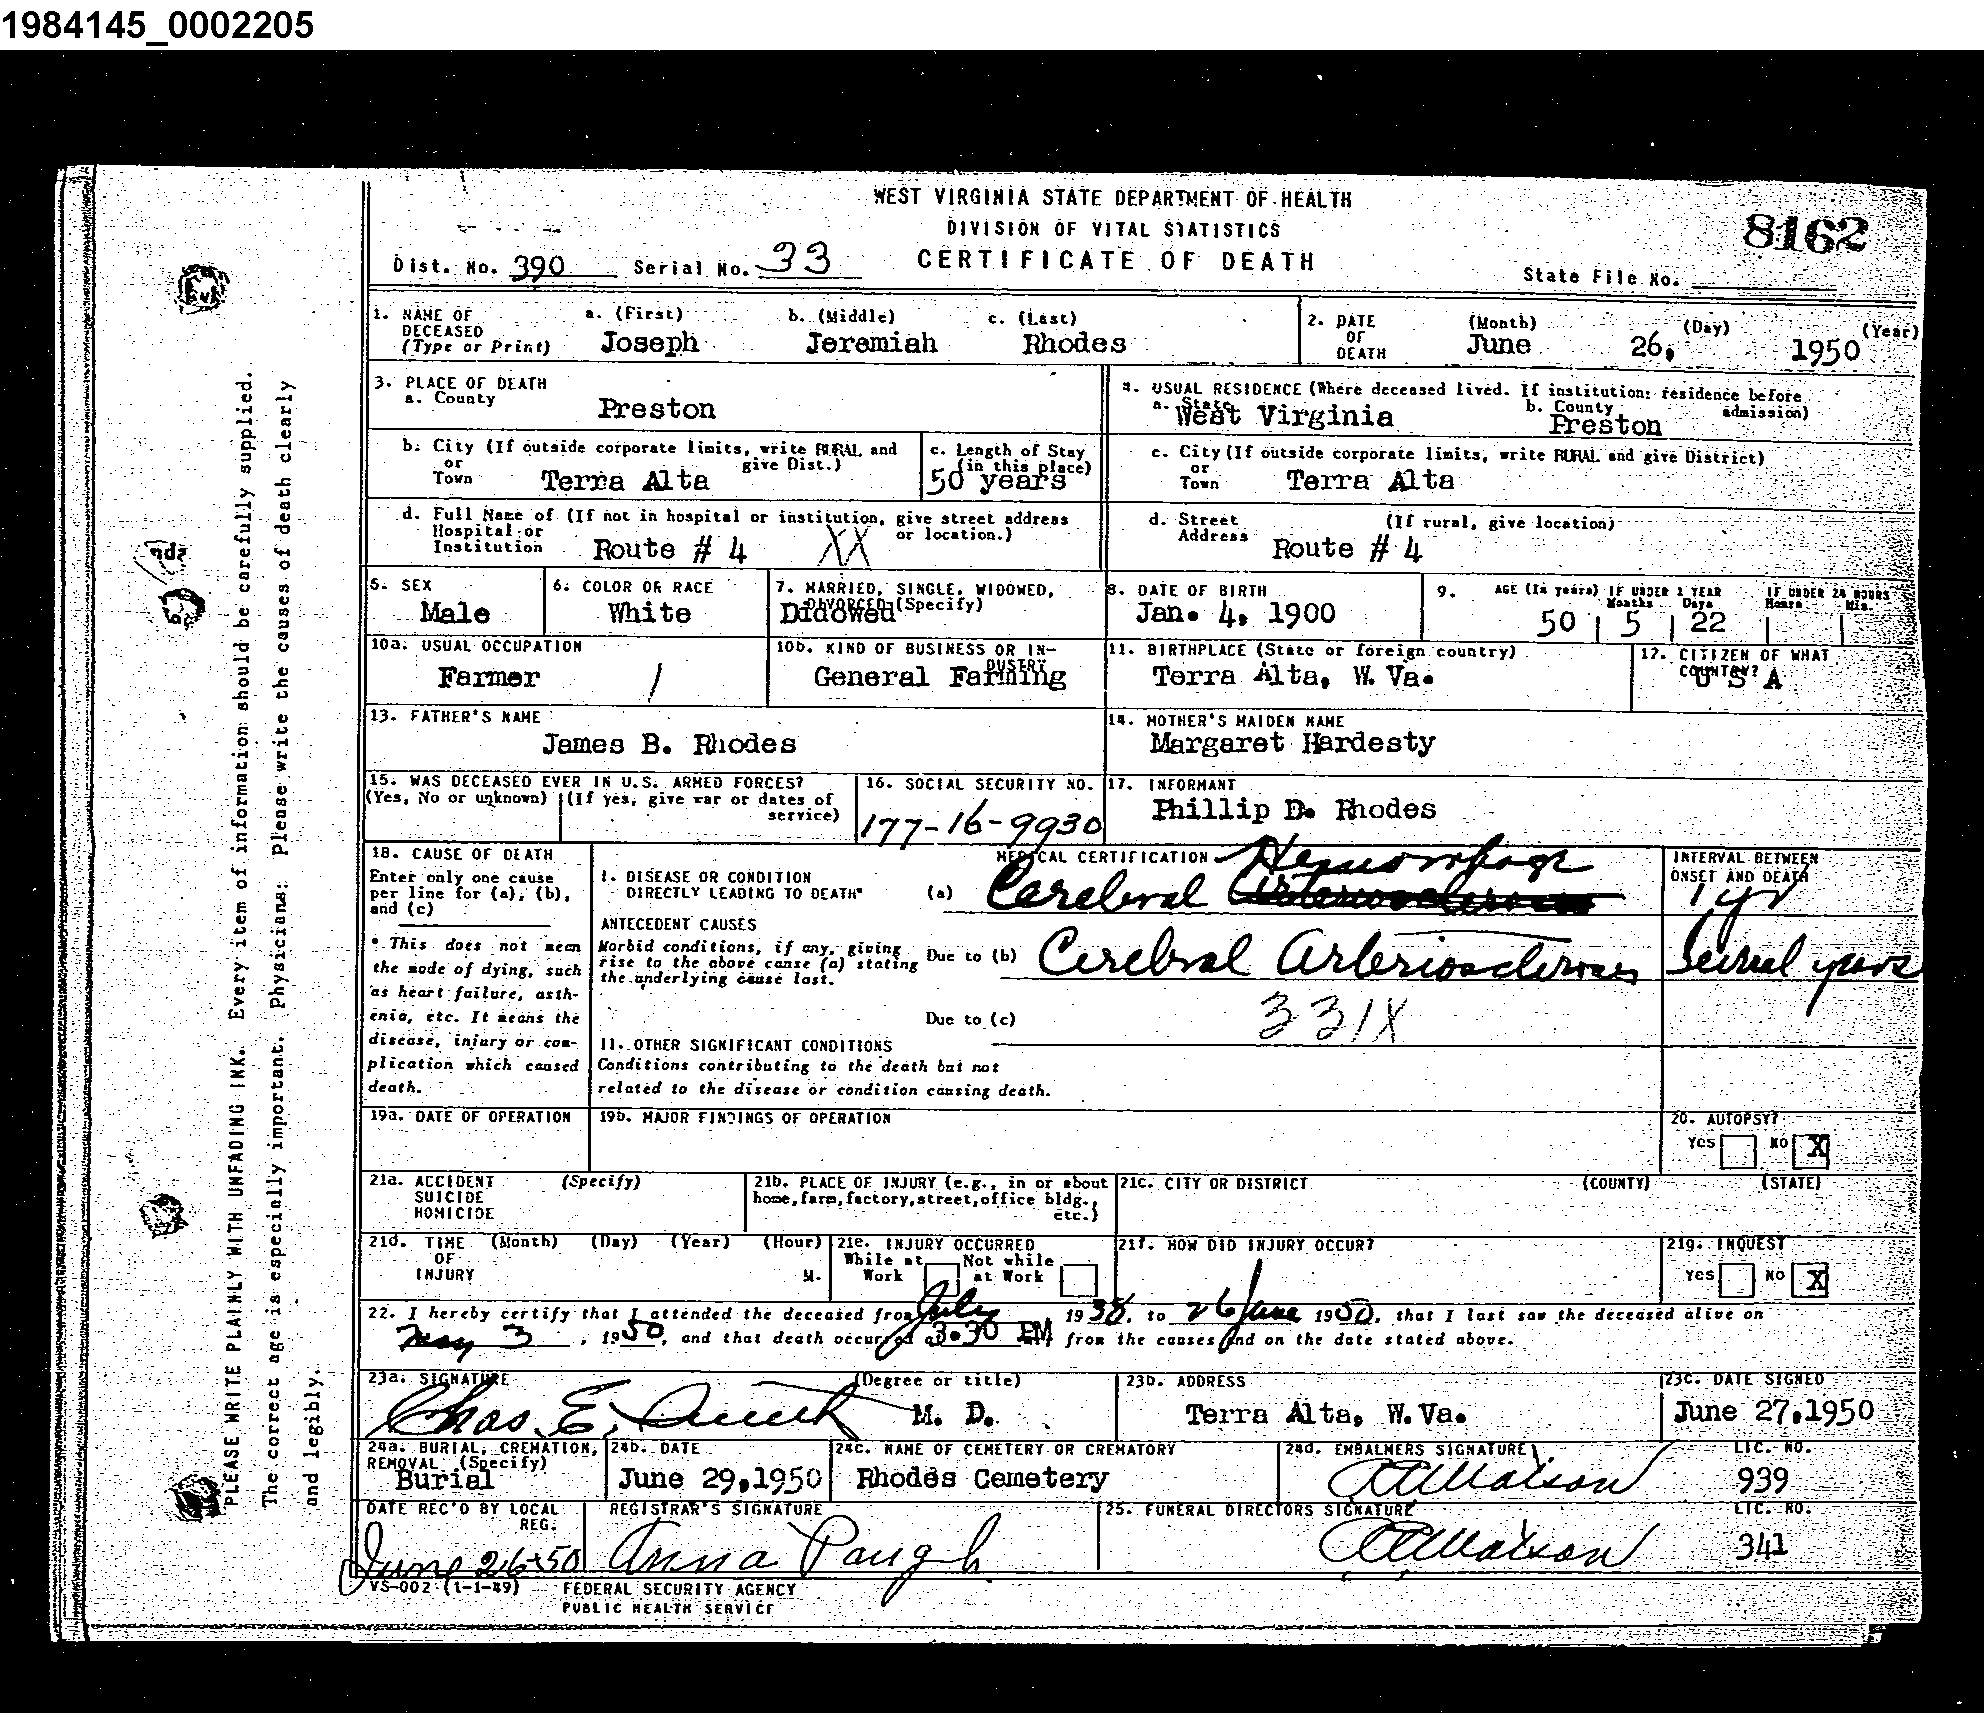 1984145_0002205
WEST VIRGINIA STATE DEPARTMENT OF HEALTH
DIVISION OF VITAL STATISTICS
8162
Dist. No. 390 Serial No. 33 CERTIFICATE OF DEATH
State File No.
1. NAME OF DECEASED (Type or Print) a. (First) b. (Middle) c. (Last)
Joseph Jeremiah Rhodes
2. DATE OF DEATH (Month) (Day) (Year)
June 26, 1950
3. PLACE OF DEATH
a. County Preston
4. USUAL RESIDENCE (Where deceased lived. If institution: residence before admission)
a. State West Virginia b. County Preston
b. City (If outside corporate limits, write RURAL and give Dist.)
or Town Terra Alta
c. Length of Stay (in this place)
50 years
c. City (If outside corporate limits, write RURAL and give District)
or Town Terra Alta
d. Full Name of (If not in hospital or institution, give street address or location.)
Hospital or Institution Route # 4 XX
d. Street Address (If rural, give location)
Route # 4
5. SEX
Male
6. COLOR OR RACE
White
7. MARRIED, SINGLE, WIDOWED, DIVORCED (Specify)
Didowed
8. DATE OF BIRTH
Jan. 4, 1900
9. AGE (In years) IF UNDER 1 YEAR Months Days IF UNDER 24 HOURS Hours Min.
50 5 22
10a. USUAL OCCUPATION
Farmer /
10b. KIND OF BUSINESS OR INDUSTRY
General Farming
11. BIRTHPLACE (State or foreign country)
Terra Alta, W. Va.
12. CITIZEN OF WHAT COUNTRY?
U S A
13. FATHER'S NAME
James B. Rhodes
14. MOTHER'S MAIDEN NAME
Margaret Hardesty
15. WAS DECEASED EVER IN U.S. ARMED FORCES?
(Yes, No or unknown) (If yes, give war or dates of service)
16. SOCIAL SECURITY NO.
177-16-9930
17. INFORMANT
Phillip D. Rhodes
18. CAUSE OF DEATH
Enter only one cause per line for (a), (b), and (c)
* This does not mean the mode of dying, such as heart failure, asthenia, etc. It means the disease, injury or complication which caused death.
MEDICAL CERTIFICATION
INTERVAL BETWEEN ONSET AND DEATH
1. DISEASE OR CONDITION DIRECTLY LEADING TO DEATH* (a) Cerebral Hemorrhage
1 yr
ANTECEDENT CAUSES
Morbid conditions, if any, giving rise to the above cause (a) stating the underlying cause last.
Due to (b) Cerebral Arteriosclerosis
Several years
Due to (c)
331X
11. OTHER SIGNIFICANT CONDITIONS
Conditions contributing to the death but not
related to the disease or condition causing death.
19a. DATE OF OPERATION
19b. MAJOR FINDINGS OF OPERATION
20. AUTOPSY?
YES NO X
21a. ACCIDENT SUICIDE HOMICIDE (Specify)
21b. PLACE OF INJURY (e.g., in or about home, farm, factory, street, office bldg., etc.)
21c. CITY OR DISTRICT (COUNTY) (STATE)
21d. TIME OF INJURY (Month) (Day) (Year) (Hour) M.
21e. INJURY OCCURRED
While at Work Not while at Work
21f. HOW DID INJURY OCCUR?
21g. INQUEST
YES NO X
22. I hereby certify that I attended the deceased from July 1938, to 26 June 1950, that I last saw the deceased alive on
May 3, 1950, and that death occurred at 3:30 PM from the causes and on the date stated above.
23a. SIGNATURE (Degree or title)
Chas. E. M. D.
23b. ADDRESS
Terra Alta, W.Va.
23c. DATE SIGNED
June 27, 1950
24a. BURIAL, CREMATION, REMOVAL (Specify)
Burial
24b. DATE
June 29, 1950
24c. NAME OF CEMETERY OR CREMATORY
Rhodes Cemetery
24d. EMBALMERS SIGNATURE LIC. NO.
Watson 939
DATE REC'D BY LOCAL REG.
June 26-50
REGISTRAR'S SIGNATURE
Anna Paugh
25. FUNERAL DIRECTORS SIGNATURE LIC. NO.
Watson 341
VS-002 (1-1-49) FEDERAL SECURITY AGENCY
PUBLIC HEALTH SERVICE
PLEASE WRITE PLAINLY WITH UNFADING INK. Every item of information should be carefully supplied.
The correct age is especially important. Physicians: Please write the causes of death clearly
and legibly.